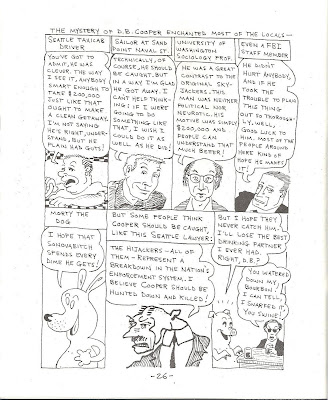 THE MYSTERY OF D.B. COOPER ENCHANTED MOST OF THE LOCALS—
SEATTLE TAXICAB
DRIVER
YOU'VE GOT TO
ADMIT, HE WAS
CLEVER. THE WAY
I SEE IT, ANYBODY
SMART ENOUGH TO
TAKE $200,000
JUST LIKE THAT
OUGHT TO MAKE
A CLEAN GETAWAY.
I'M NOT SAYING
HE'S RIGHT, UNDER-
STAND, BUT HE
PLAIN HAD GUTS!
SAILOR AT SAND
POINT NAVAL ST.
TECHNICALLY, OF
COURSE, HE SHOULD
BE CAUGHT. BUT
IN A WAY I'M GLAD
HE GOT AWAY. I
CAN'T HELP THINK-
ING: IF I WERE
GOING TO DO
SOMETHING LIKE
THAT, I WISH I
COULD DO IT AS
WELL AS HE DID!
UNIVERSITY OF
WASHINGTON
SOCIOLOGY PROF.
HE WAS A GREAT
CONTRAST TO THE
ORIGINAL SKY-
JACKERS. THIS
MAN WAS NEITHER
POLITICAL NOR
NEUROTIC. HIS
MOTIVE WAS SIMPLY
$200,000 AND
PEOPLE CAN
UNDERSTAND THAT
MUCH BETTER!
EVEN A FBI
STAFF MEMBER
HE DIDN'T
HURT ANYBODY.
AND IF HE
TOOK THE
TROUBLE TO PLAN
THIS THING
OUT SO THOROUGH-
LY, WELL,
GOOD LUCK TO
HIM. MOST OF THE
PEOPLE AROUND
HERE KIND OF
HOPE HE MADE IT
MORTY THE
DOG
I HOPE THAT
SONOVABITCH
SPENDS EVERY
DIME HE GETS!
BUT SOME PEOPLE THINK
COOPER SHOULD BE CAUGHT,
LIKE THIS SEATTLE LAWYER:
THE HIJACKERS—ALL OF
THEM—REPRESENT A
BREAKDOWN IN THE NATION'S
ENFORCEMENT SYSTEM. I
BELIEVE COOPER SHOULD BE
HUNTED DOWN AND KILLED!
BUT I HOPE THEY
NEVER CATCH HIM.
I'LL LOSE THE BEST
DRINKING PARTNER
I EVER HAD.
RIGHT, D.B.?
YOU WATERED
DOWN MY
BOURBON!
I CAN TELL.
I SNARFED IT
YOU SWINE!
-26-